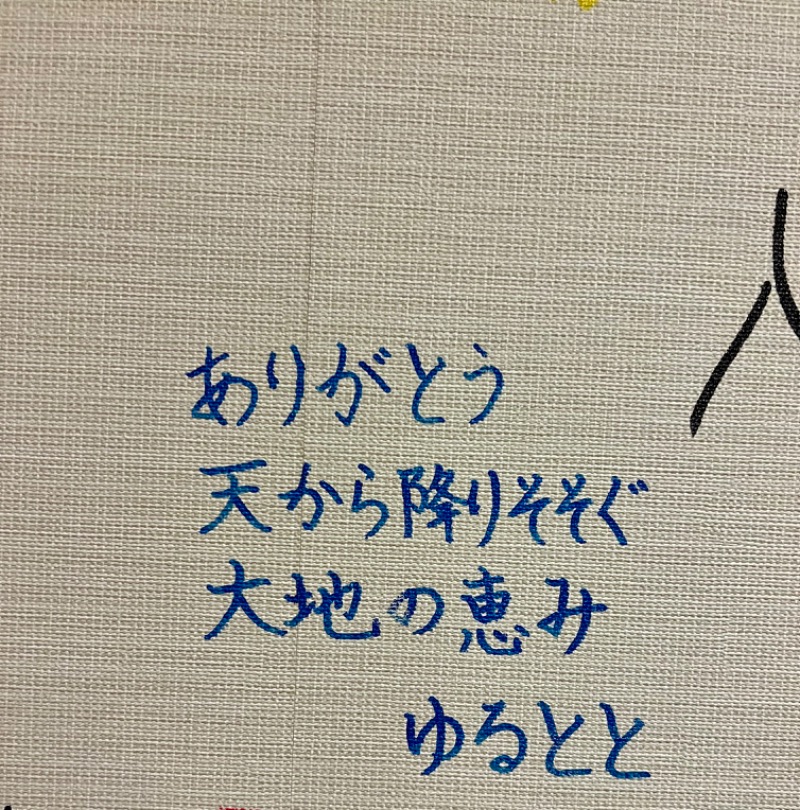 ありがとう
天から降りそそぐ
大地の恵み
ゆるとと